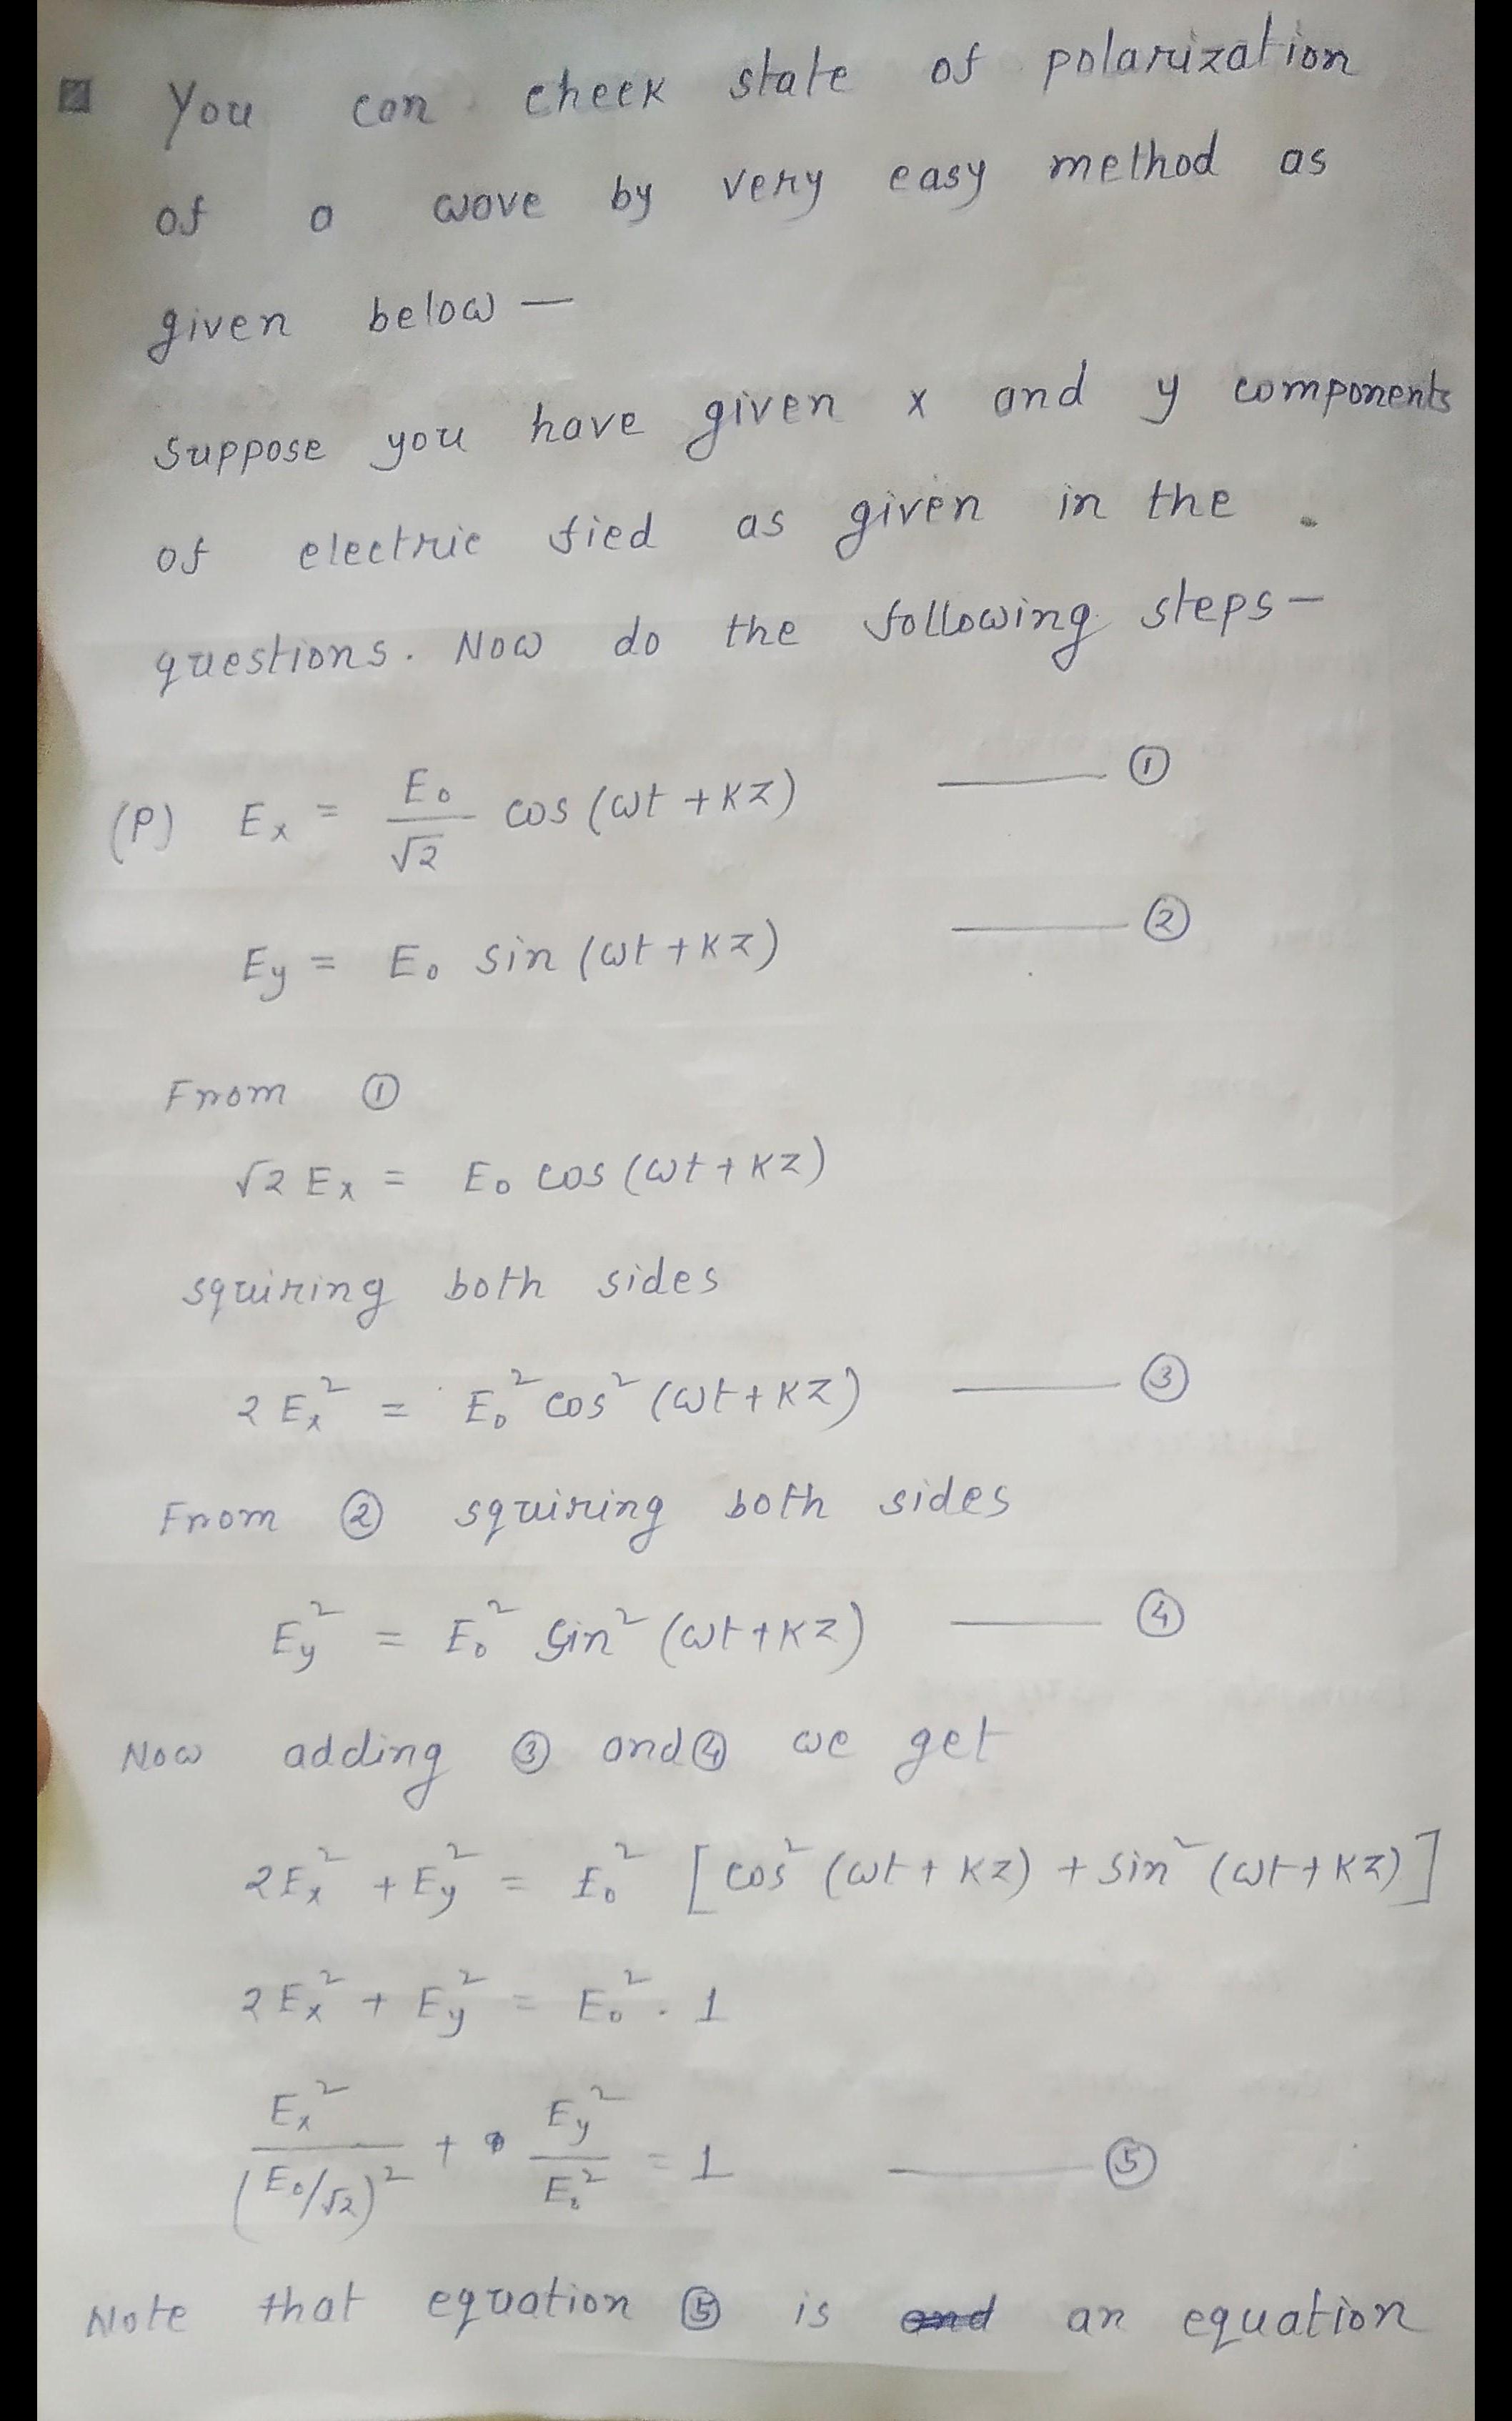 You can check state of polarization
of a wave by very easy method as
given below —
Suppose you have given x and y components
of electric fied as given in the
questions. Now do the following steps —
(P) Ex = E₀/√2 cos (ωt + kz) —— ①
Ey = E₀ sin (ωt + kz) —— ②
From ①
√2 Ex = E₀ cos (ωt + kz)
squiring both sides
2 Ex² = E₀² cos² (ωt + kz) —— ③
From ② squiring both sides
Ey² = E₀² sin² (ωt + kz) —— ④
Now adding ③ and ④ we get
2Ex² + Ey² = E₀² [cos² (ωt + kz) + sin² (ωt + kz)]
2Ex² + Ey² = E₀² . 1
Ex²/(E₀/√2)² + Ey²/E₀² = 1 —— ⑤
Note that equation ⑤ is an equation